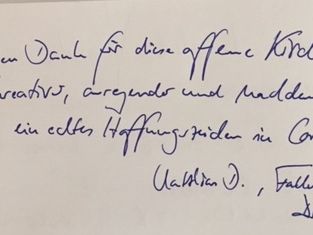 en Dank für diese offene Kirch
kreativ, anregend und nachden
ein echtes Hoffnungszeichen in Cor
D., Falk